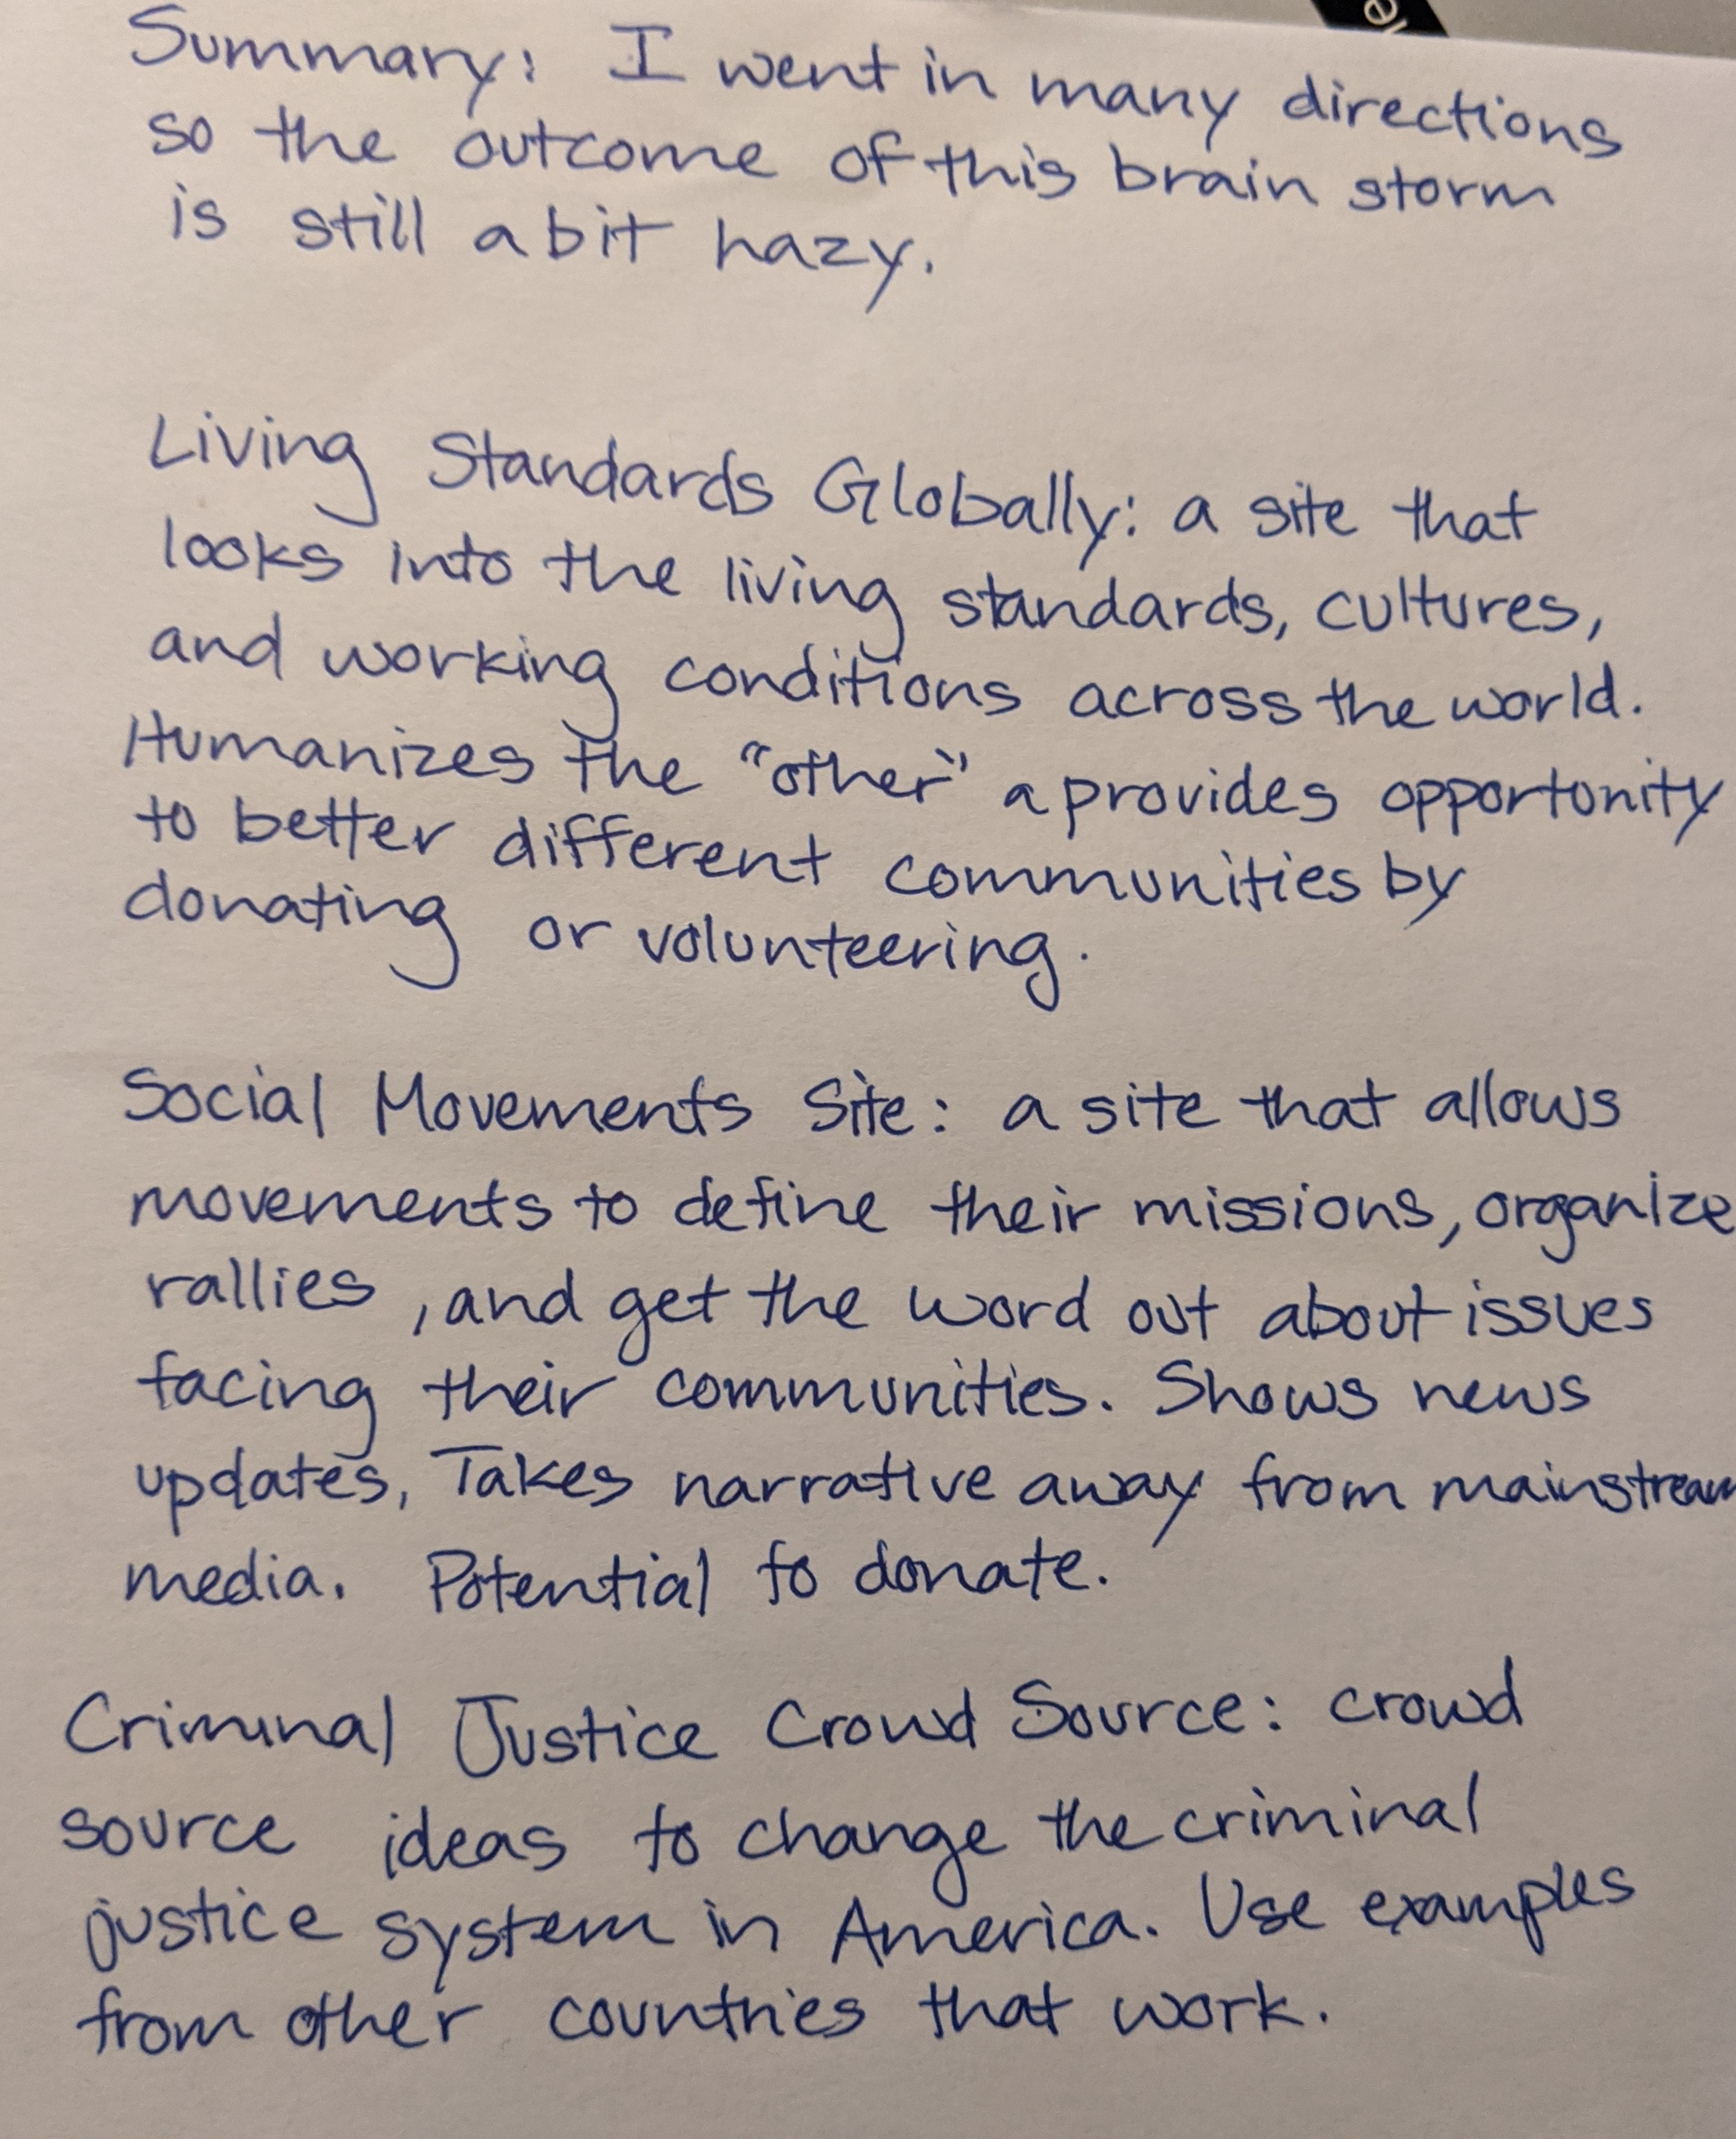 Summary: I went in many directions
so the outcome of this brain storm
is still a bit hazy.
Living Standards Globally: a site that
looks into the living standards, cultures,
and working conditions across the world.
Humanizes the "other" a provides opportunity
to better different communities by
donating or volunteering.
Social Movements Site: a site that allows
movements to define their missions, organize
rallies, and get the word out about issues
facing their communities. Shows news
updates, Takes narrative away from mainstream
media. Potential to donate.
Criminal Justice Crowd Source: crowd
source ideas to change the criminal
justice system in America. Use examples
from other countries that work.